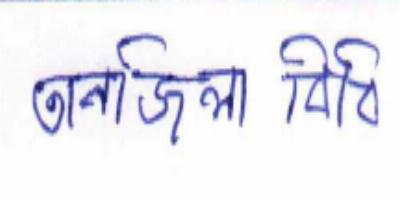 তানজিলা বিবি